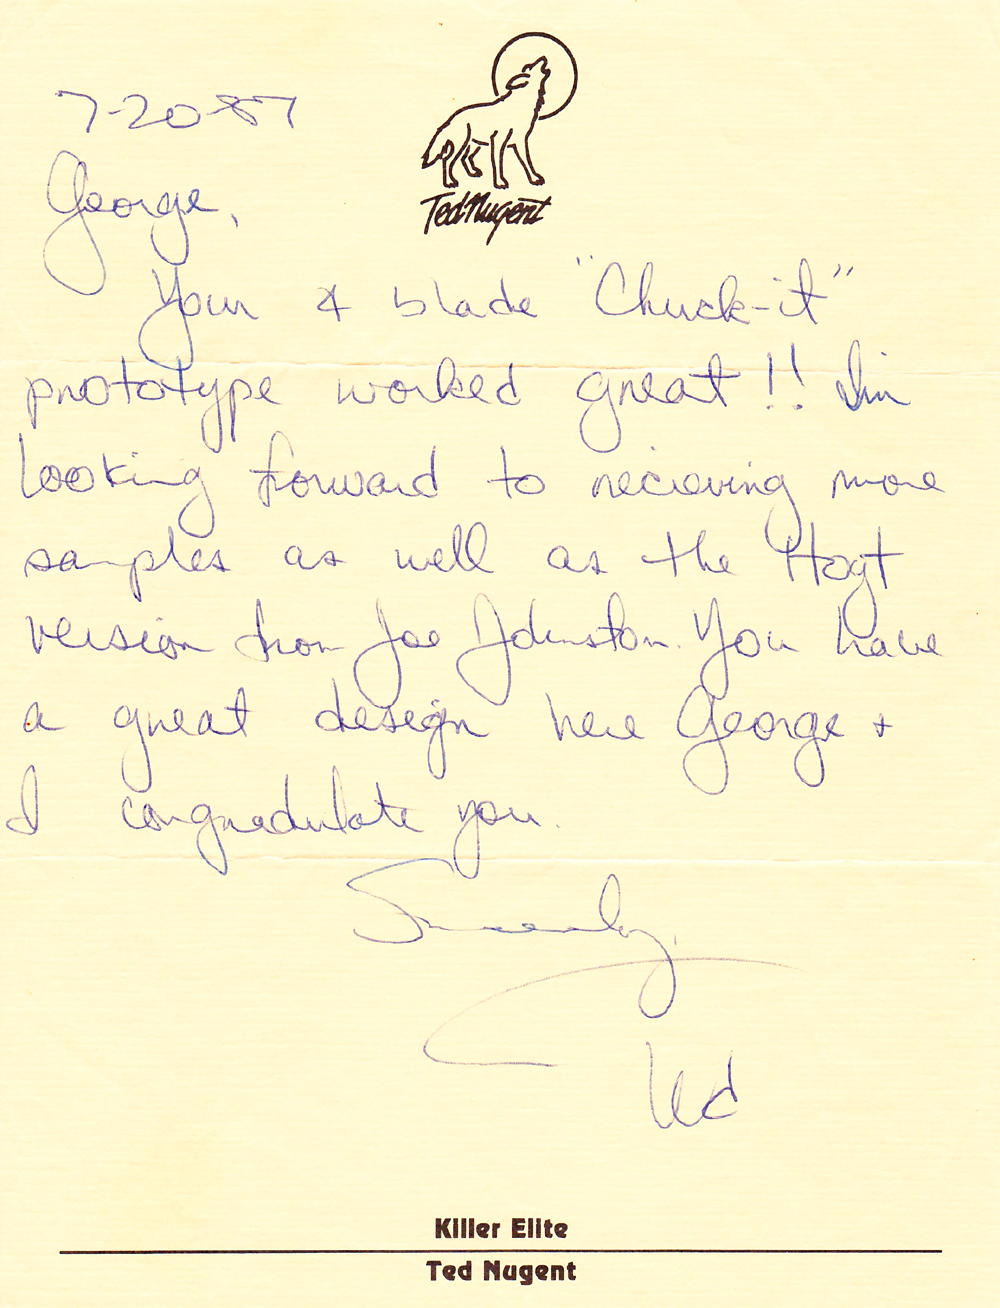 7-20-87
Ted Nugent
George,
Your 4 blade "Chuck-it"
prototype worked great!! Im
looking forward to recieving more
samples as well as the Hoyt
version from Joe Johnston. You have
a great design here George +
I congradulate you.
Sincerely,
Ted
Killer Elite
Ted Nugent